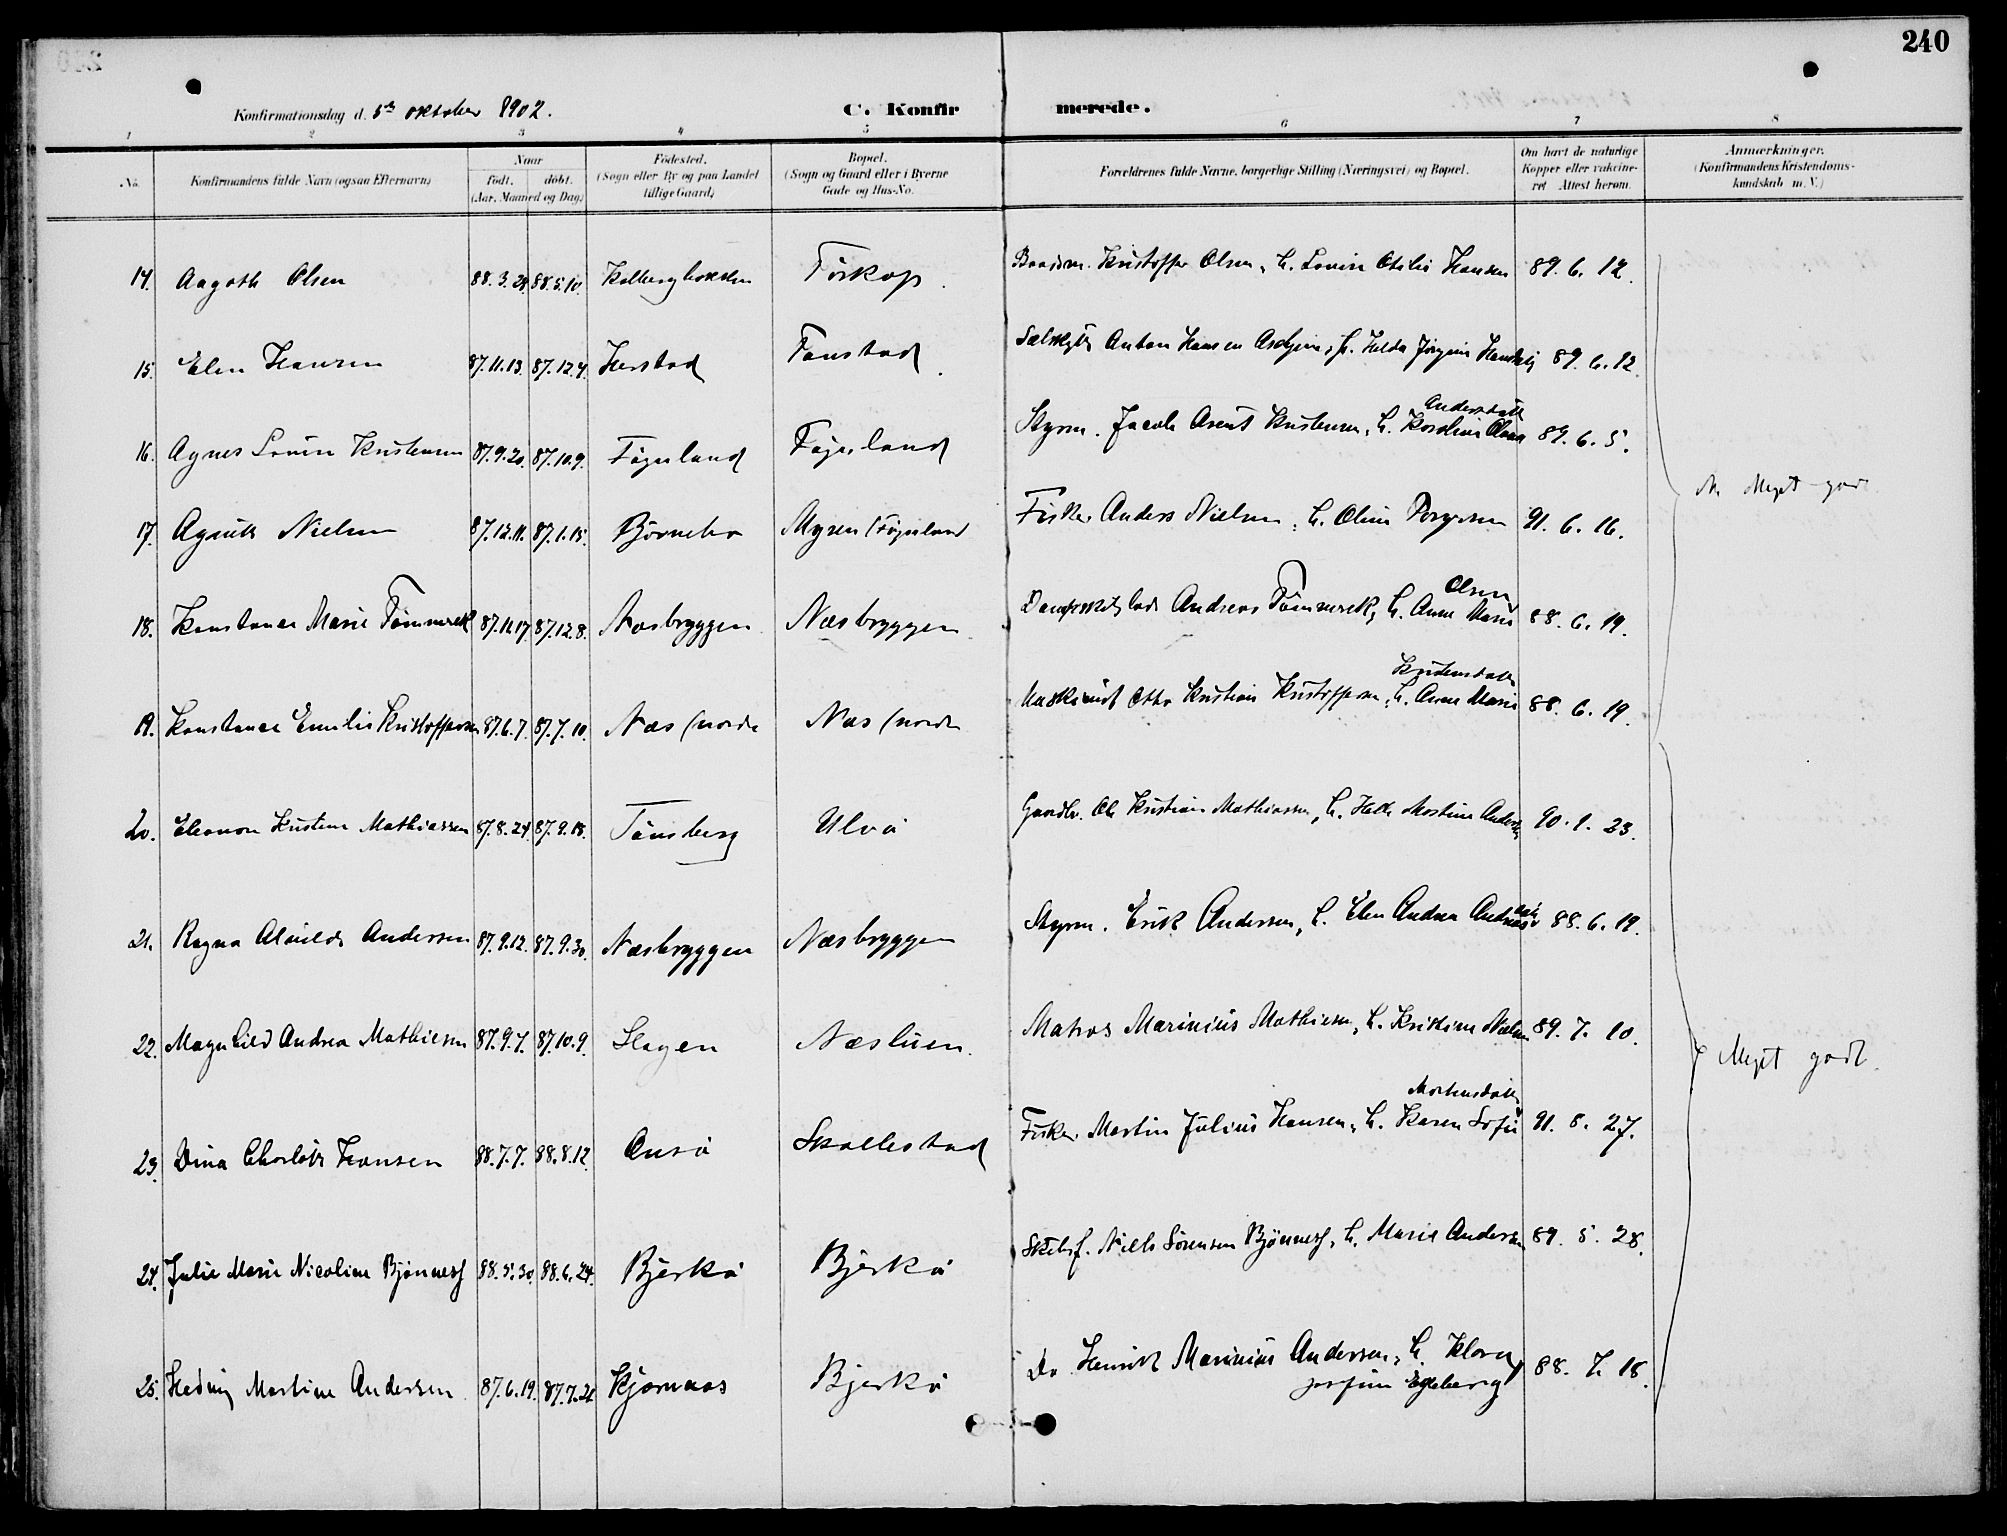 240
Konfirmationsdag d. 5te oktober 1902. C. Konfirmerede.
1 2 3 4 5 6 7 8
No. Konfirmandens fulde Navn (ogsaa Efternavn) Naar födt. döbt. (Aar, Maaned og Dag.) Födested. (Sogn eller By og paa Landet tillige Gaard.) Bopæl. (Sogn og Gaard eller i Byerne Gade og Hus-No. Forældrenes fulde Navne, borgerlige Stilling (Næringsvei) og Bopæl. Om havt de naturlige Kopper eller vakcineret. Attest herom. Anmærkninger. (Konfirmandens Kristendomskundskab m. V.)
14. Aagoth Olsen 88.3.29 88.5.10. Torkop. Kristoffer Olsen, h. Lovise Otilie Hansen 89. 6. 12.
15. Elen Hansen 87.11.13. 87.12.4. Herstad Fanstad. Anton Hansen h. Helda Jörgine 89. 6. 12.
16. Agnes Lovise Kristensen 87.9.20. 87.10.9. Föjnland Föjnland Styrm. Jacob Arent Kristensen, h. Karoline Olava Andersdatt 89. 6. 5.
17. Agnete Nielsen 87.12.11. 87.1.15. Björnebo Myren (Föjnland Fisker Anders Nielsen, h. Oline 91. 6. 16.
Meget godt
18. Konstance Marie Tömmerek 87.11.17 87.12.8. Næsbryggen Næsbryggen Andreas Tömmerek, h. Anne Marie Olsen 88. 6. 19.
19. Konstance Emilie Kristoffersen 87.6.7. 87.7.10. Næs (nordre Næs (nordre Maskinist Otto Kristian Kristoffersen, h. Anne Marie Kristensdatt 88. 6. 19.
20. Eleonore Kristine Mathiassen 87.8.24. 87.9.18. Tönsberg Ulvö Gaardbr. Ole Kristian Mathiassen, h. Helle Martine Anders 90. 1. 23.
21. Ragna Alvilde Andersen 87.9.12. 87.9.30. Næsbryggen Næsbryggen Styrm. Erik Andersen, h. Elen Andrea Andreasdatt 88. 6. 19.
22. Magnhild Andrea Mathiesen 87.9.7. 87.10.9. Slagen Næsluen. Matros Marinius Mathiesen, h. Kristine Nielsen 89. 7. 10.
Meget godt.
23. Dina Charlotte Hansen 88.7.7. 88.8.12. Ansö Skallestad Fisker Martin Julius Hansen, h. Karen Sofie Mortensdatt 91. 8. 27.
24. Julie Marie Nicoline Bjönnes 88.5.30. 88.6.24. Bjerkö Bjerkö Skibsf. Niels Sörensen Bjönnes, h. Marie Andersen 89. 5. 28.
25. Hedvig Martine Andersen 87.6.19. 87.7.21. Kjærnaas Bjerkö Do. Henrik Marinius Andersen, h. Klara Josefine Egeberg 88. 7. 18.